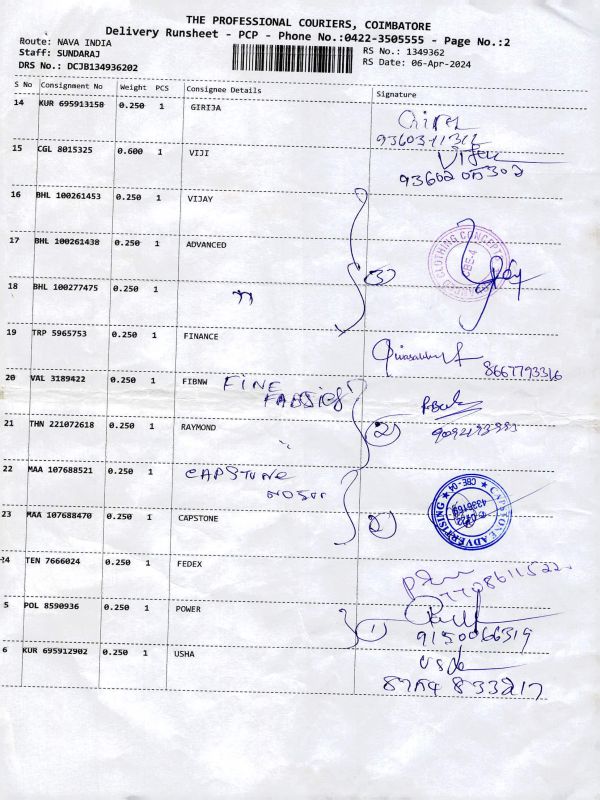 THE PROFESSIONAL COURIERS, COIMBATORE
Delivery Runsheet - PCP - Phone No.:0422-3505555 - Page No.:2
Route: NAVA INDIA
RS No.: 1349362
Staff: SUNDARAJ
RS Date: 06-Apr-2024
DRS No.: DCJB134936202
S No Consignment No Weight PCS Consignee Details Signature
14 KUR 695913150 0.250 1 GIRIJA
15 CGL 8015325 0.600 1 VIJI
16 BHL 100261453 0.250 1 VIJAY
17 BHL 100261438 0.250 1 ADVANCED
CLOTHING CONCEPT
18 BHL 100277475 0.250 1 (3)
19 TRP 5965753 0.250 1 FINANCE
8667793316
20 VAL 3189422 0.250 1 FIBNW FINE
21 THN 221072618 0.250 1 RAYMOND (2)
22 MAA 107688521 0.250 1 CAPSTONE
CAPSTONE ADVERTISING CBE-04
23 MAA 107688470 0.250 1 CAPSTONE
24 TEN 7666024 0.250 1 FEDEX
5 POL 8590936 0.250 1 POWER (1)
9150066319
6 KUR 695912902 0.250 1 USHA